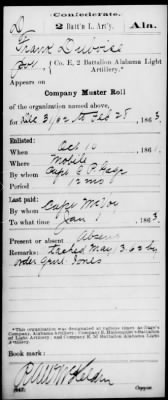 Confederate.
D 2 Batt'n L. Art'y. Ala.
Frank
Co. E, 2 Battalion Alabama Light
Artillery.*
Appears on
Company Muster Roll
of the organization named above,
for Dec 31/62 to Feb 28, 1863
Enlisted:
When Oct 10, 186
Where Mobile
By whom Capt
Period 12 mo
Last paid:
By whom Capt McVoy
To what time Jan 1, 186
Present or absent Absent
Remarks: May 3.62 by
order Genl. Jones
*This organization was designated at various times as Gage's
Company, Alabama Artillery; Company E, Hallonquist's Battalion
of Light Artillery; and Company E, 2d Battalion Alabama Light
Artillery.
Book mark:
Copyist.